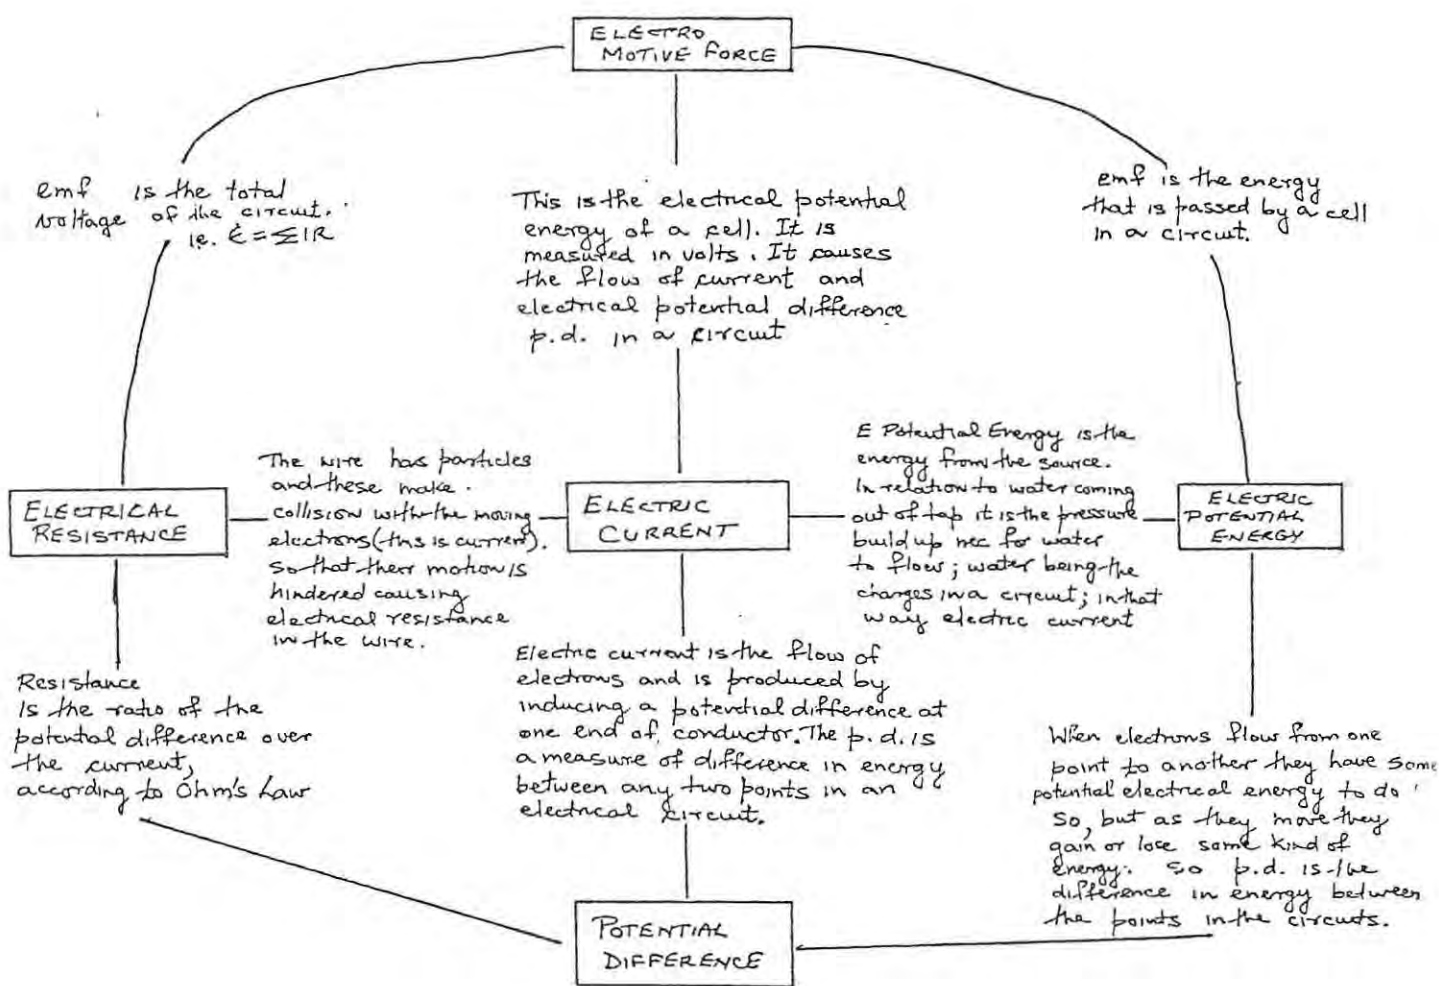 ELECTRO
MOTIVE FORCE
emf is the total
voltage of the circuit.
ie. Ɛ = ΣIR
This is the electrical potential
energy of a cell. It is
measured in volts. It causes
the flow of current and
electrical potential difference
p.d. in a circuit
emf is the energy
that is passed by a cell
in a circuit.
ELECTRICAL
RESISTANCE
The wire has particles
and these make
collision with the moving
electrons (this is current).
so that their motion is
hindered causing
electrical resistance
in the wire.
ELECTRIC
CURRENT
E Potential Energy is the
energy from the source.
In relation to water coming
out of tap it is the pressure
build up nec for water
to flow; water being the
charges in a circuit; in that
way electric current
ELECTRIC
POTENTIAL
ENERGY
Resistance
Is the ratio of the
potential difference over
the current,
according to Ohm's Law
Electric current is the flow of
electrons and is produced by
inducing a potential difference at
one end of conductor. The p.d. is
a measure of difference in energy
between any two points in an
electrical circuit.
When electrons flow from one
point to another they have some
potential electrical energy to do
so, but as they move they
gain or lose some kind of
energy. So p.d. is the
difference in energy between
the points in the circuits.
POTENTIAL
DIFFERENCE